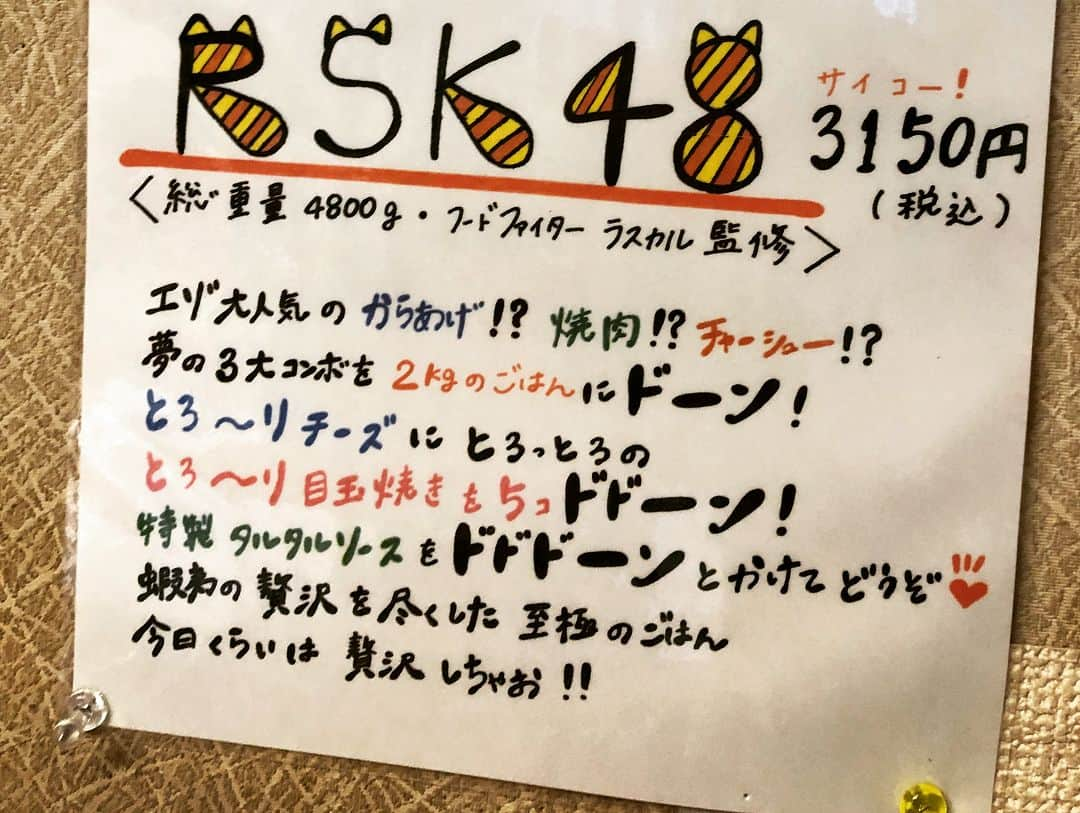 RSK48
サイコー!
3150円
(税込)
〈総重量 4800g・フードファイター ラスカル 監修〉
エゾ大人気の からあげ!? 焼肉!? チャーシュー!?
夢の3大コンボを 2kgのごはんにドーン!
とろ〜りチーズに とろっとろの
とろ〜り目玉焼きを5コドドーン!
特製タルタルソースをドドドーンとかけてどうぞ
蝦夷の贅沢を尽くした至極のごはん
今日くらいは贅沢しちゃお!!